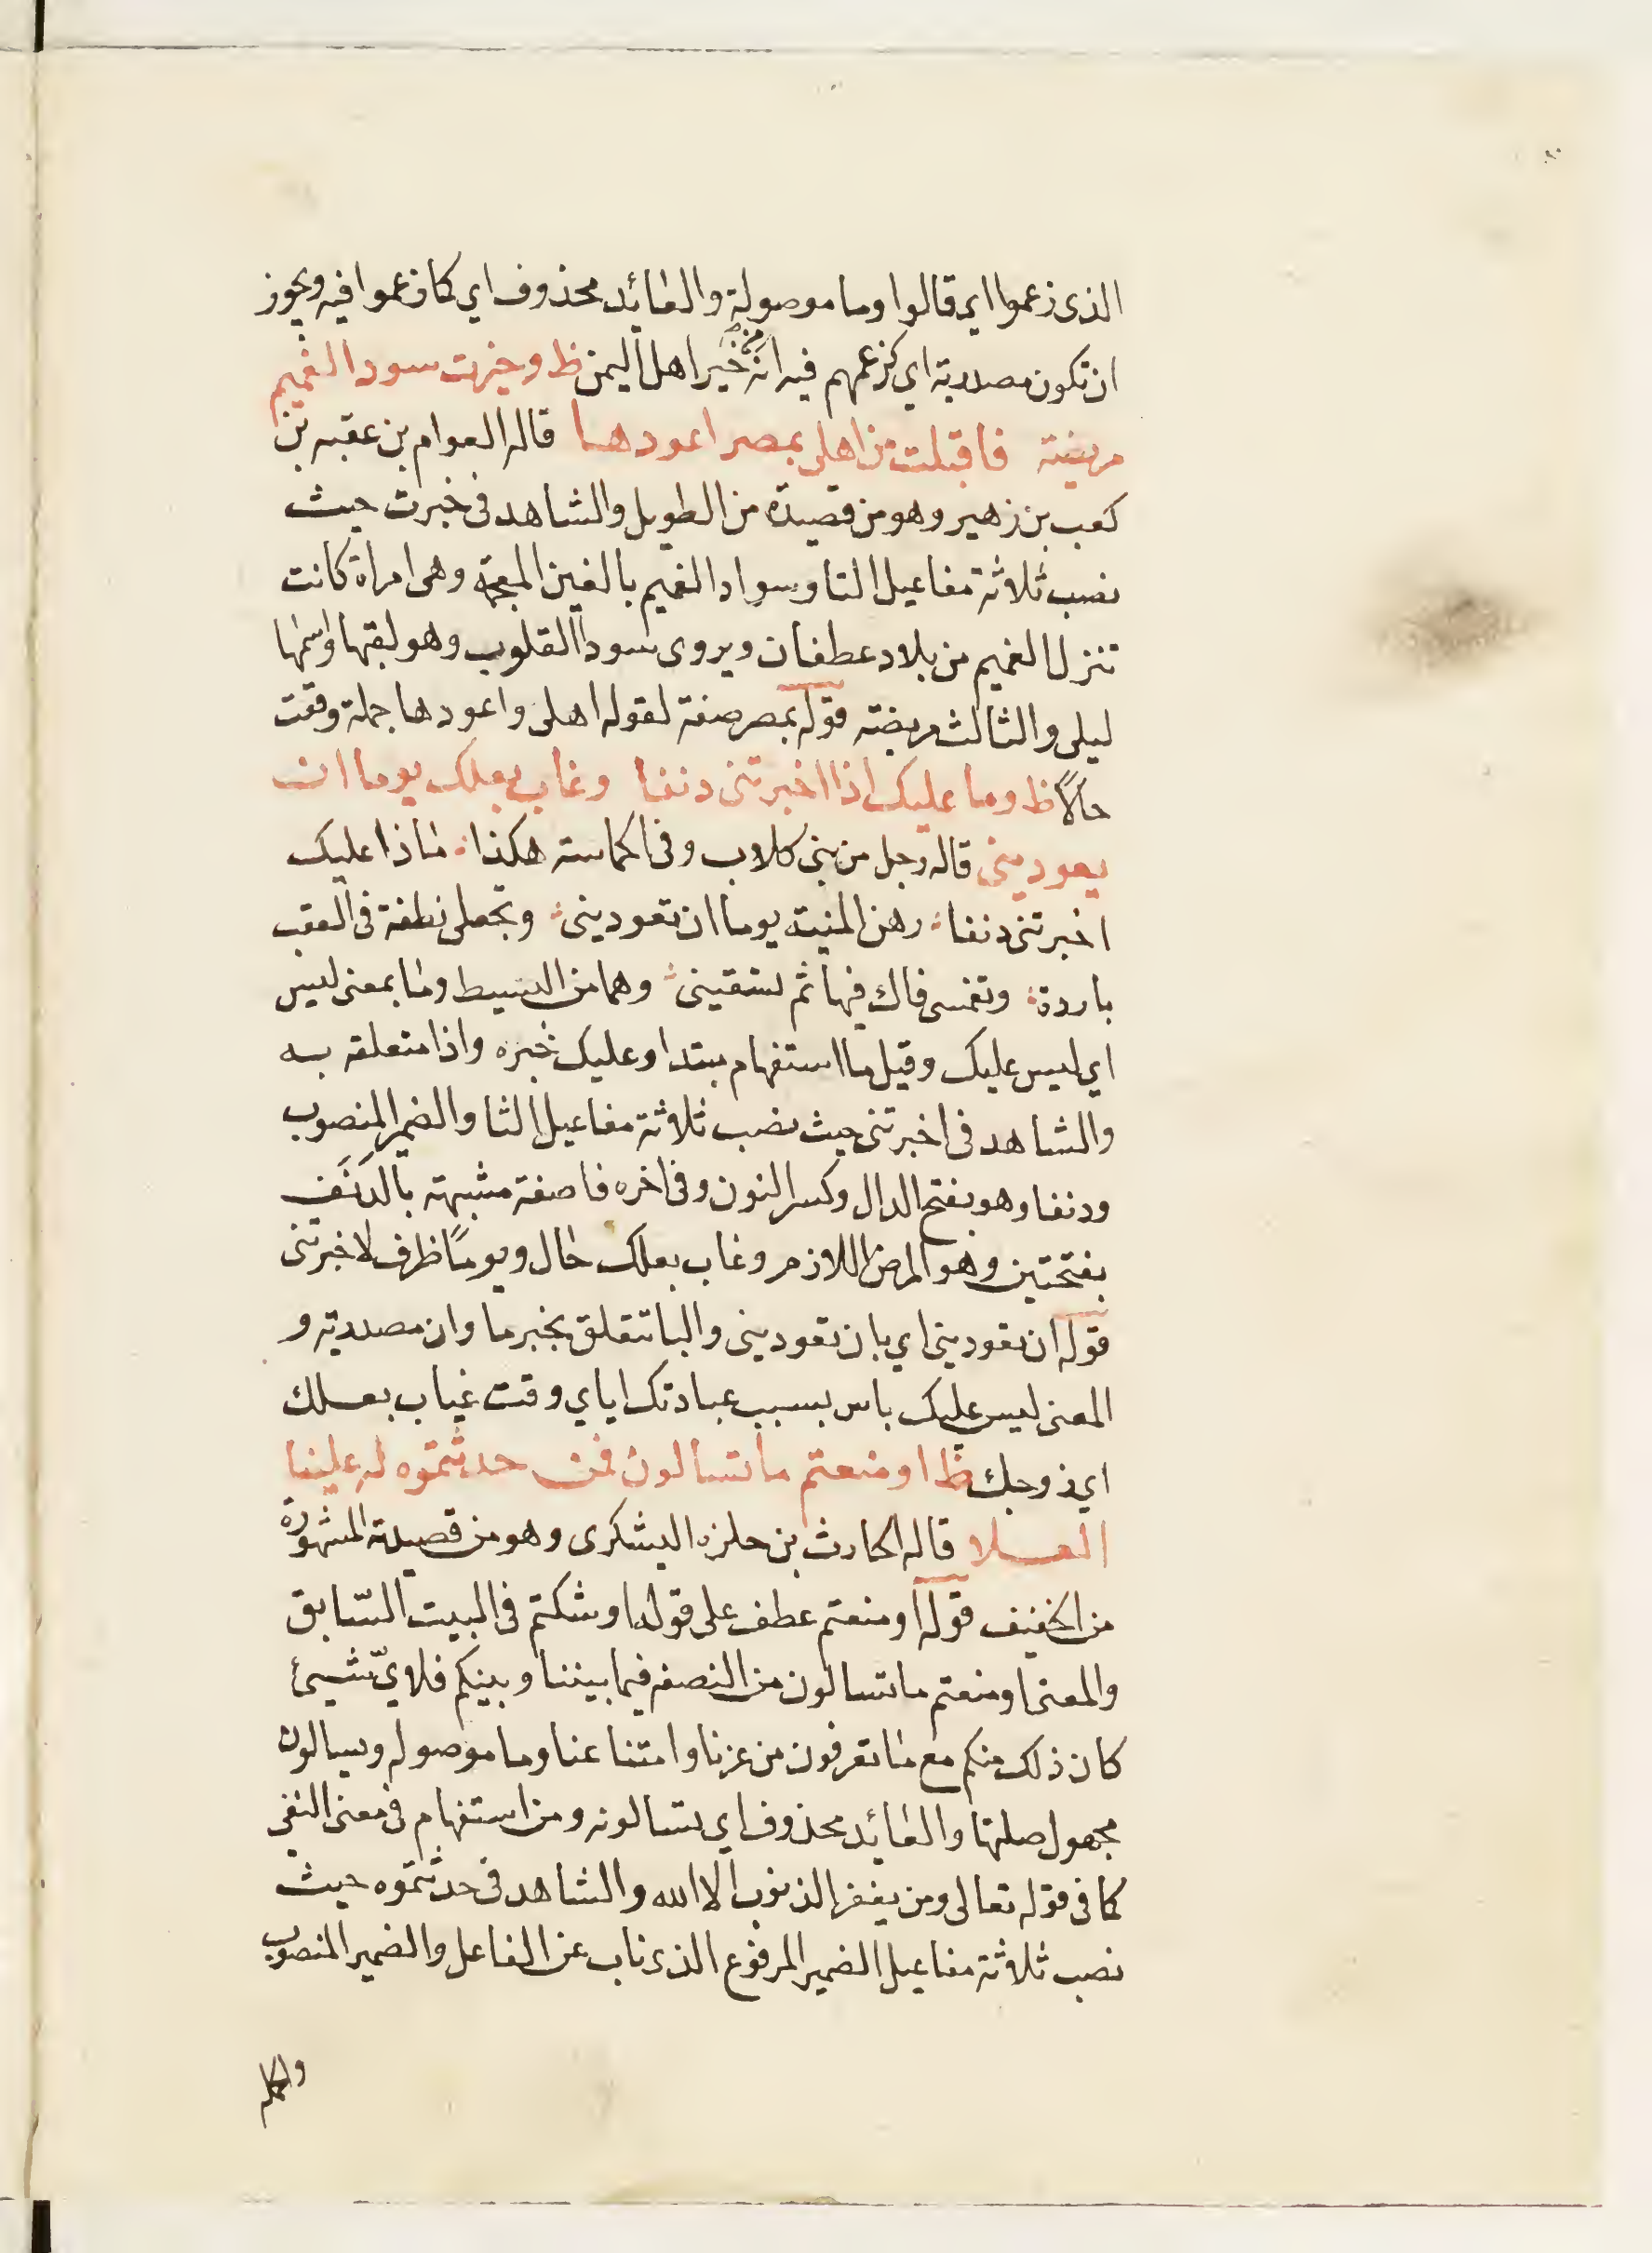 الذى زعموا اي قالوا وما موصولة والعائد محذوف اي كما زعموا فيه ويجوز
ان تكون مصدرية اي كزعمهم فيه انه من خير اهل اليمن ظ وخبرت سودا الغميم
مريضة فاقبلت من اهلى بمصر اعودها قاله العوام بن عقبه بن
كعب بن زهير وهو من قصيدة من الطويل والشاهد فى خبرت حيث
نصب ثلاثة مفاعيل التا وسواد الغميم بالغين المعجمة وهى امراة كانت
تنزل الغميم من بلاد عطفان ويروى سودا القلوب وهو لقبها واسمها
ليلى والثالث مريضته قوله بمصر صفة لقوله اهلى واعودها جملة وقعت
حالاً ظ وما عليك اذا اخبرتنى دنفا وغاب بعلك يوما ان
يعودينى قاله رجل من بنى كلاب وفى الحماسة هكذا ماذا عليك
اخبرتنى دنفا رهن المنية يوما ان تعودينى وتجعلى نطفة فى القعب
باردة وتغمسى فاك فيها ثم تسقينى وهما من البسيط وما بمعنى ليس
اي ليس عليك وقيل ما استفهام مبتدا وعليك خبره واذا متعلقه به
والشاهد فى اخبرتنى حيث نصب ثلاثة مفاعيل التا والضمير المنصوب
ودنفا وهو بفتح الدال وكسر النون وفى اخره فا صفة مشبهة بالدَنَف
بفتحتين وهو المرض اللازم وغاب بعلك حال ويوماً ظرف لاخبرتنى
قوله ان تعودينى اي بان تعودينى والبا تتعلق بخبر ما وان مصدرية و
المعنى ليس عليك باس بسبب عيادتك اياي وقت غياب بعلك
اي زوجك ظ او منعتم ما تسالون فمن حدثتموه له علينا
العلا قاله الحارث بن حلزه اليشكرى وهو من قصيدته المشهورة
من الخفيف قوله او منعتم عطف على قوله او شكتم فى البيت السّابق
والمعنى او منعتم ما تسالون من النصفه فيما بيننا وبينكم فلايّ شيئ
كان ذلك منكم مع ما تعرفون من عزنا وامتناعنا وما موصوله وتسالون
مجهول صلتها والعائد محذوف اي تسالونه ومن استفهام فى معنى النفى
كما فى قوله تعالى ومن يغفر الذنوب الا الله والشاهد فى حدثتموه حيث
نصب ثلاثة مفاعيل الضمير المرفوع الذى ناب عن الفاعل والضمير المنصوب